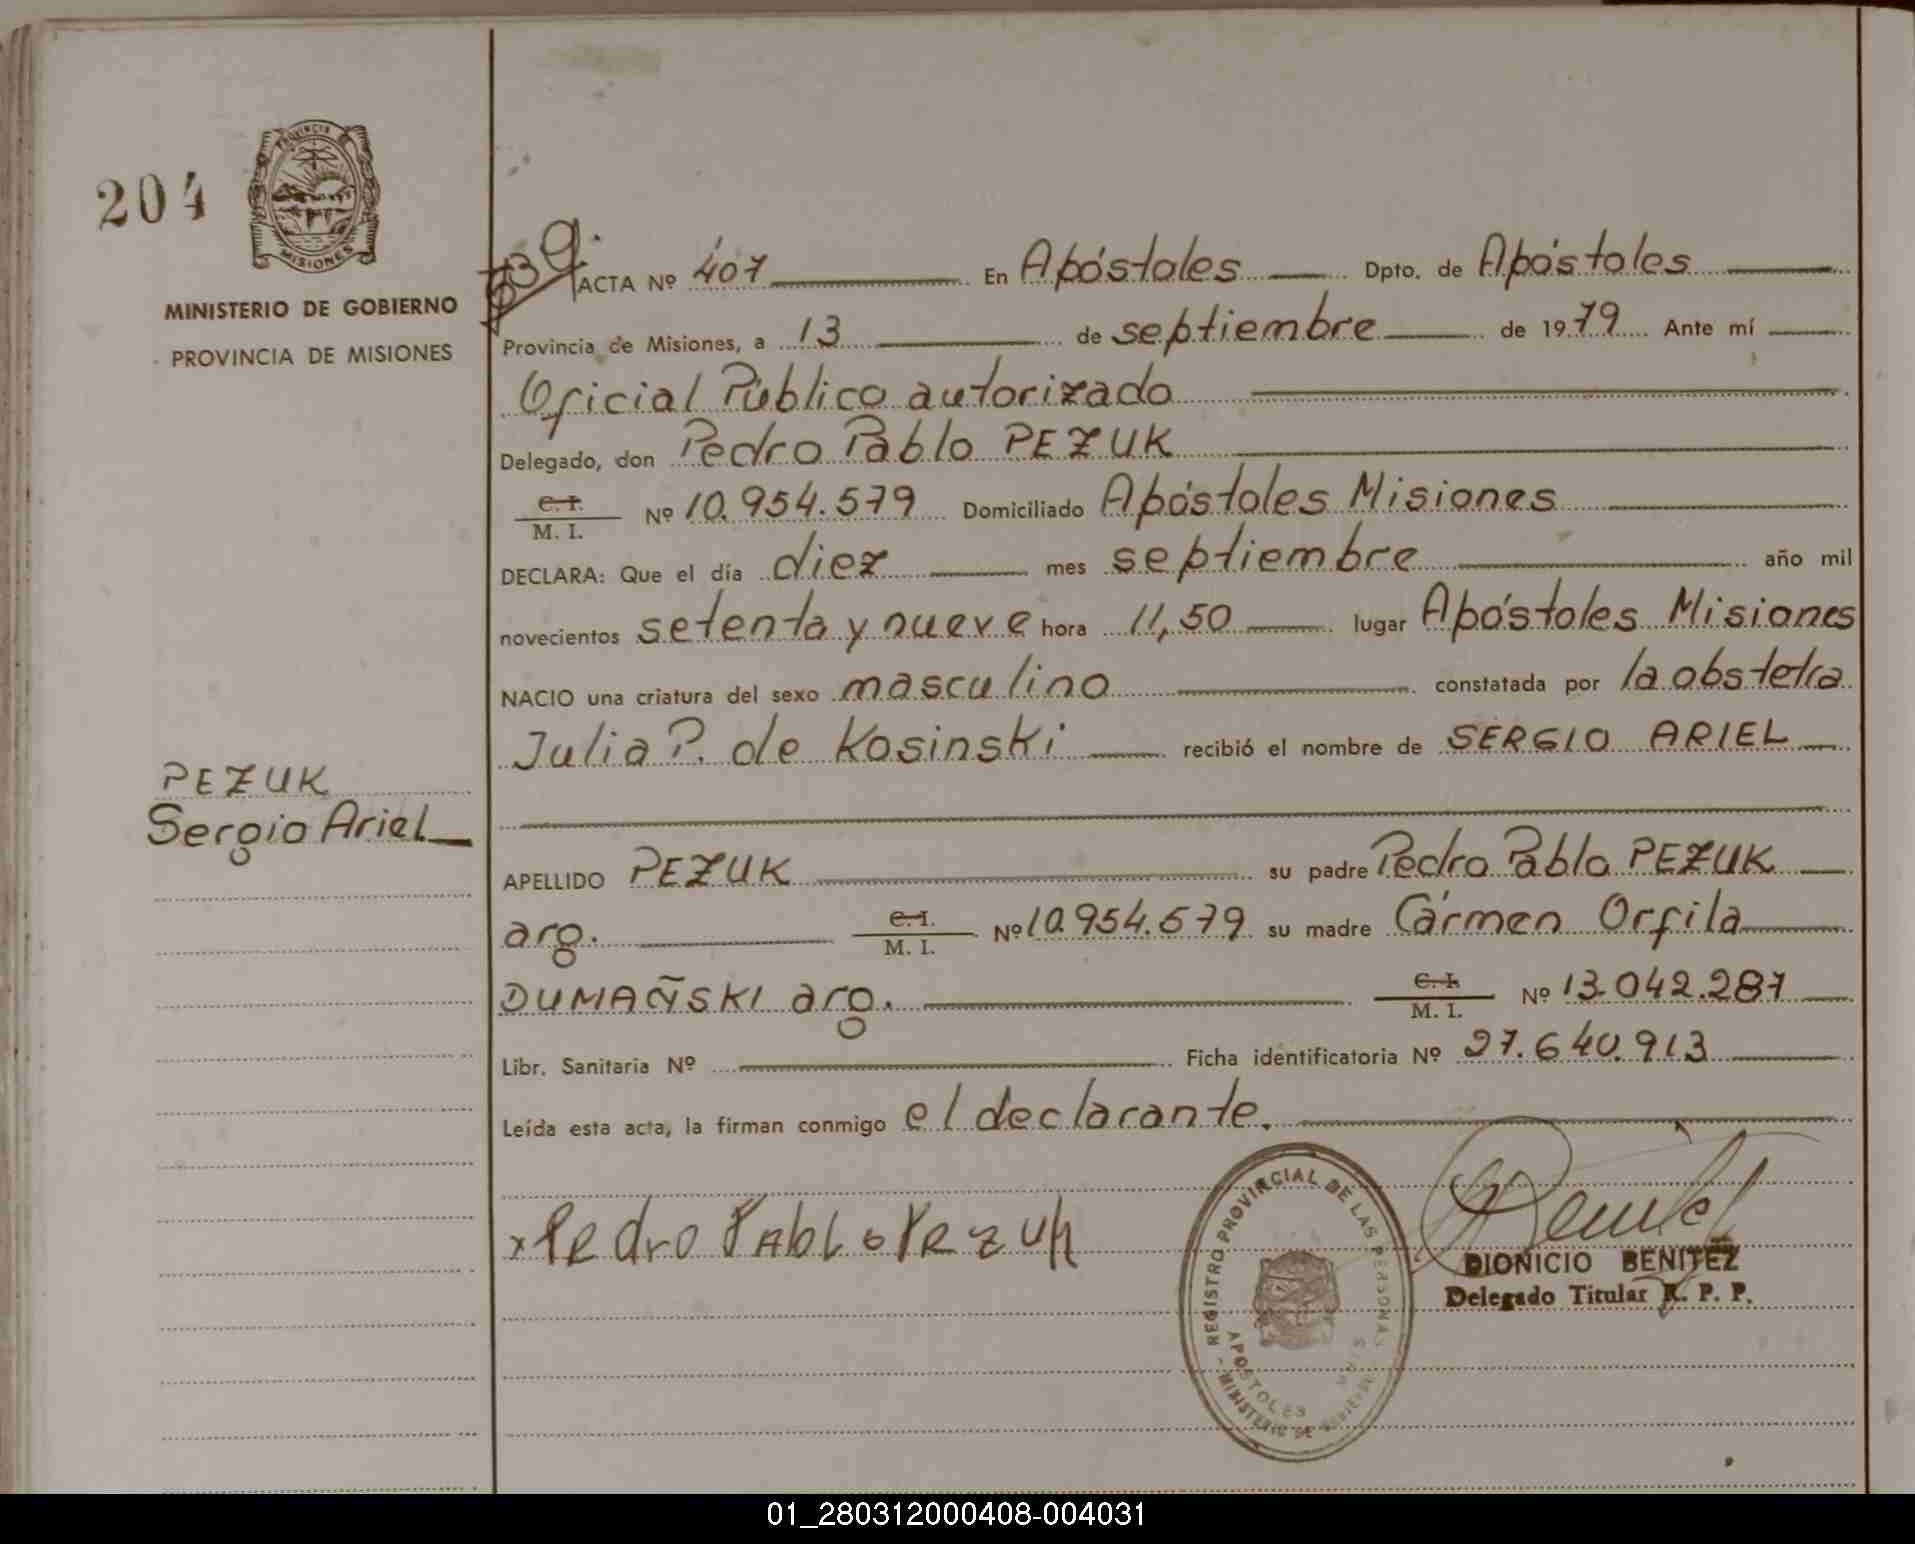 204
PROVINCIA
MISIONES
MINISTERIO DE GOBIERNO
PROVINCIA DE MISIONES
PEZUK
Sergio Ariel
ACTA Nº 407 En Apóstoles Dpto. de Apóstoles
Provincia de Misiones, a 13 de septiembre de 1979 Ante mí
Oficial Público autorizado
Delegado, don Pedro Pablo PEZUK
C. I.
M. I. Nº 10.954.579 Domiciliado Apóstoles Misiones
DECLARA: Que el día diez mes septiembre año mil
novecientos setenta y nueve hora 11,50 lugar Apóstoles Misiones
NACIO una criatura del sexo masculino constatada por la obstetra
Julia P. de Kosinski recibió el nombre de SERGIO ARIEL
APELLIDO PEZUK su padre Pedro Pablo PEZUK
arg. C. I.
M. I. Nº 10.954.579 su madre Cármen Orfila
DUMAÑSKI arg. C. I.
M. I. Nº 13.042.287
Libr. Sanitaria Nº Ficha identificatoria Nº 27.640.913
Leída esta acta, la firman conmigo el declarante.
x Pedro Pablo Pezuk
REGISTRO PROVINCIAL DE LAS PERSONAS
APOSTOLES
MINISTERIO DE GOBIERNO
DIONICIO BENITEZ
Delegado Titular R. P. P.
01_280312000408-004031